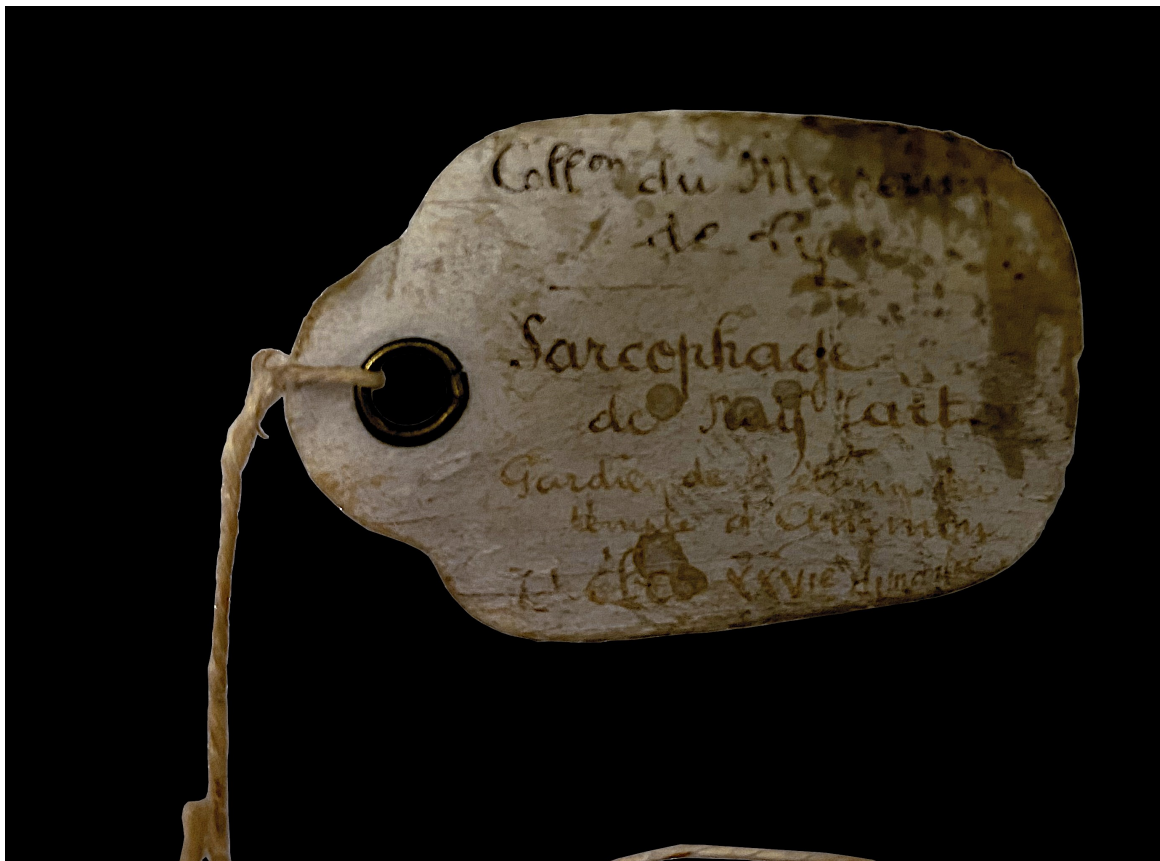 Coll^on du Museum
de Lyon
Sarcophage
de
Gardien de l'étang du
temple d'Ammon
XXVIe dynastie